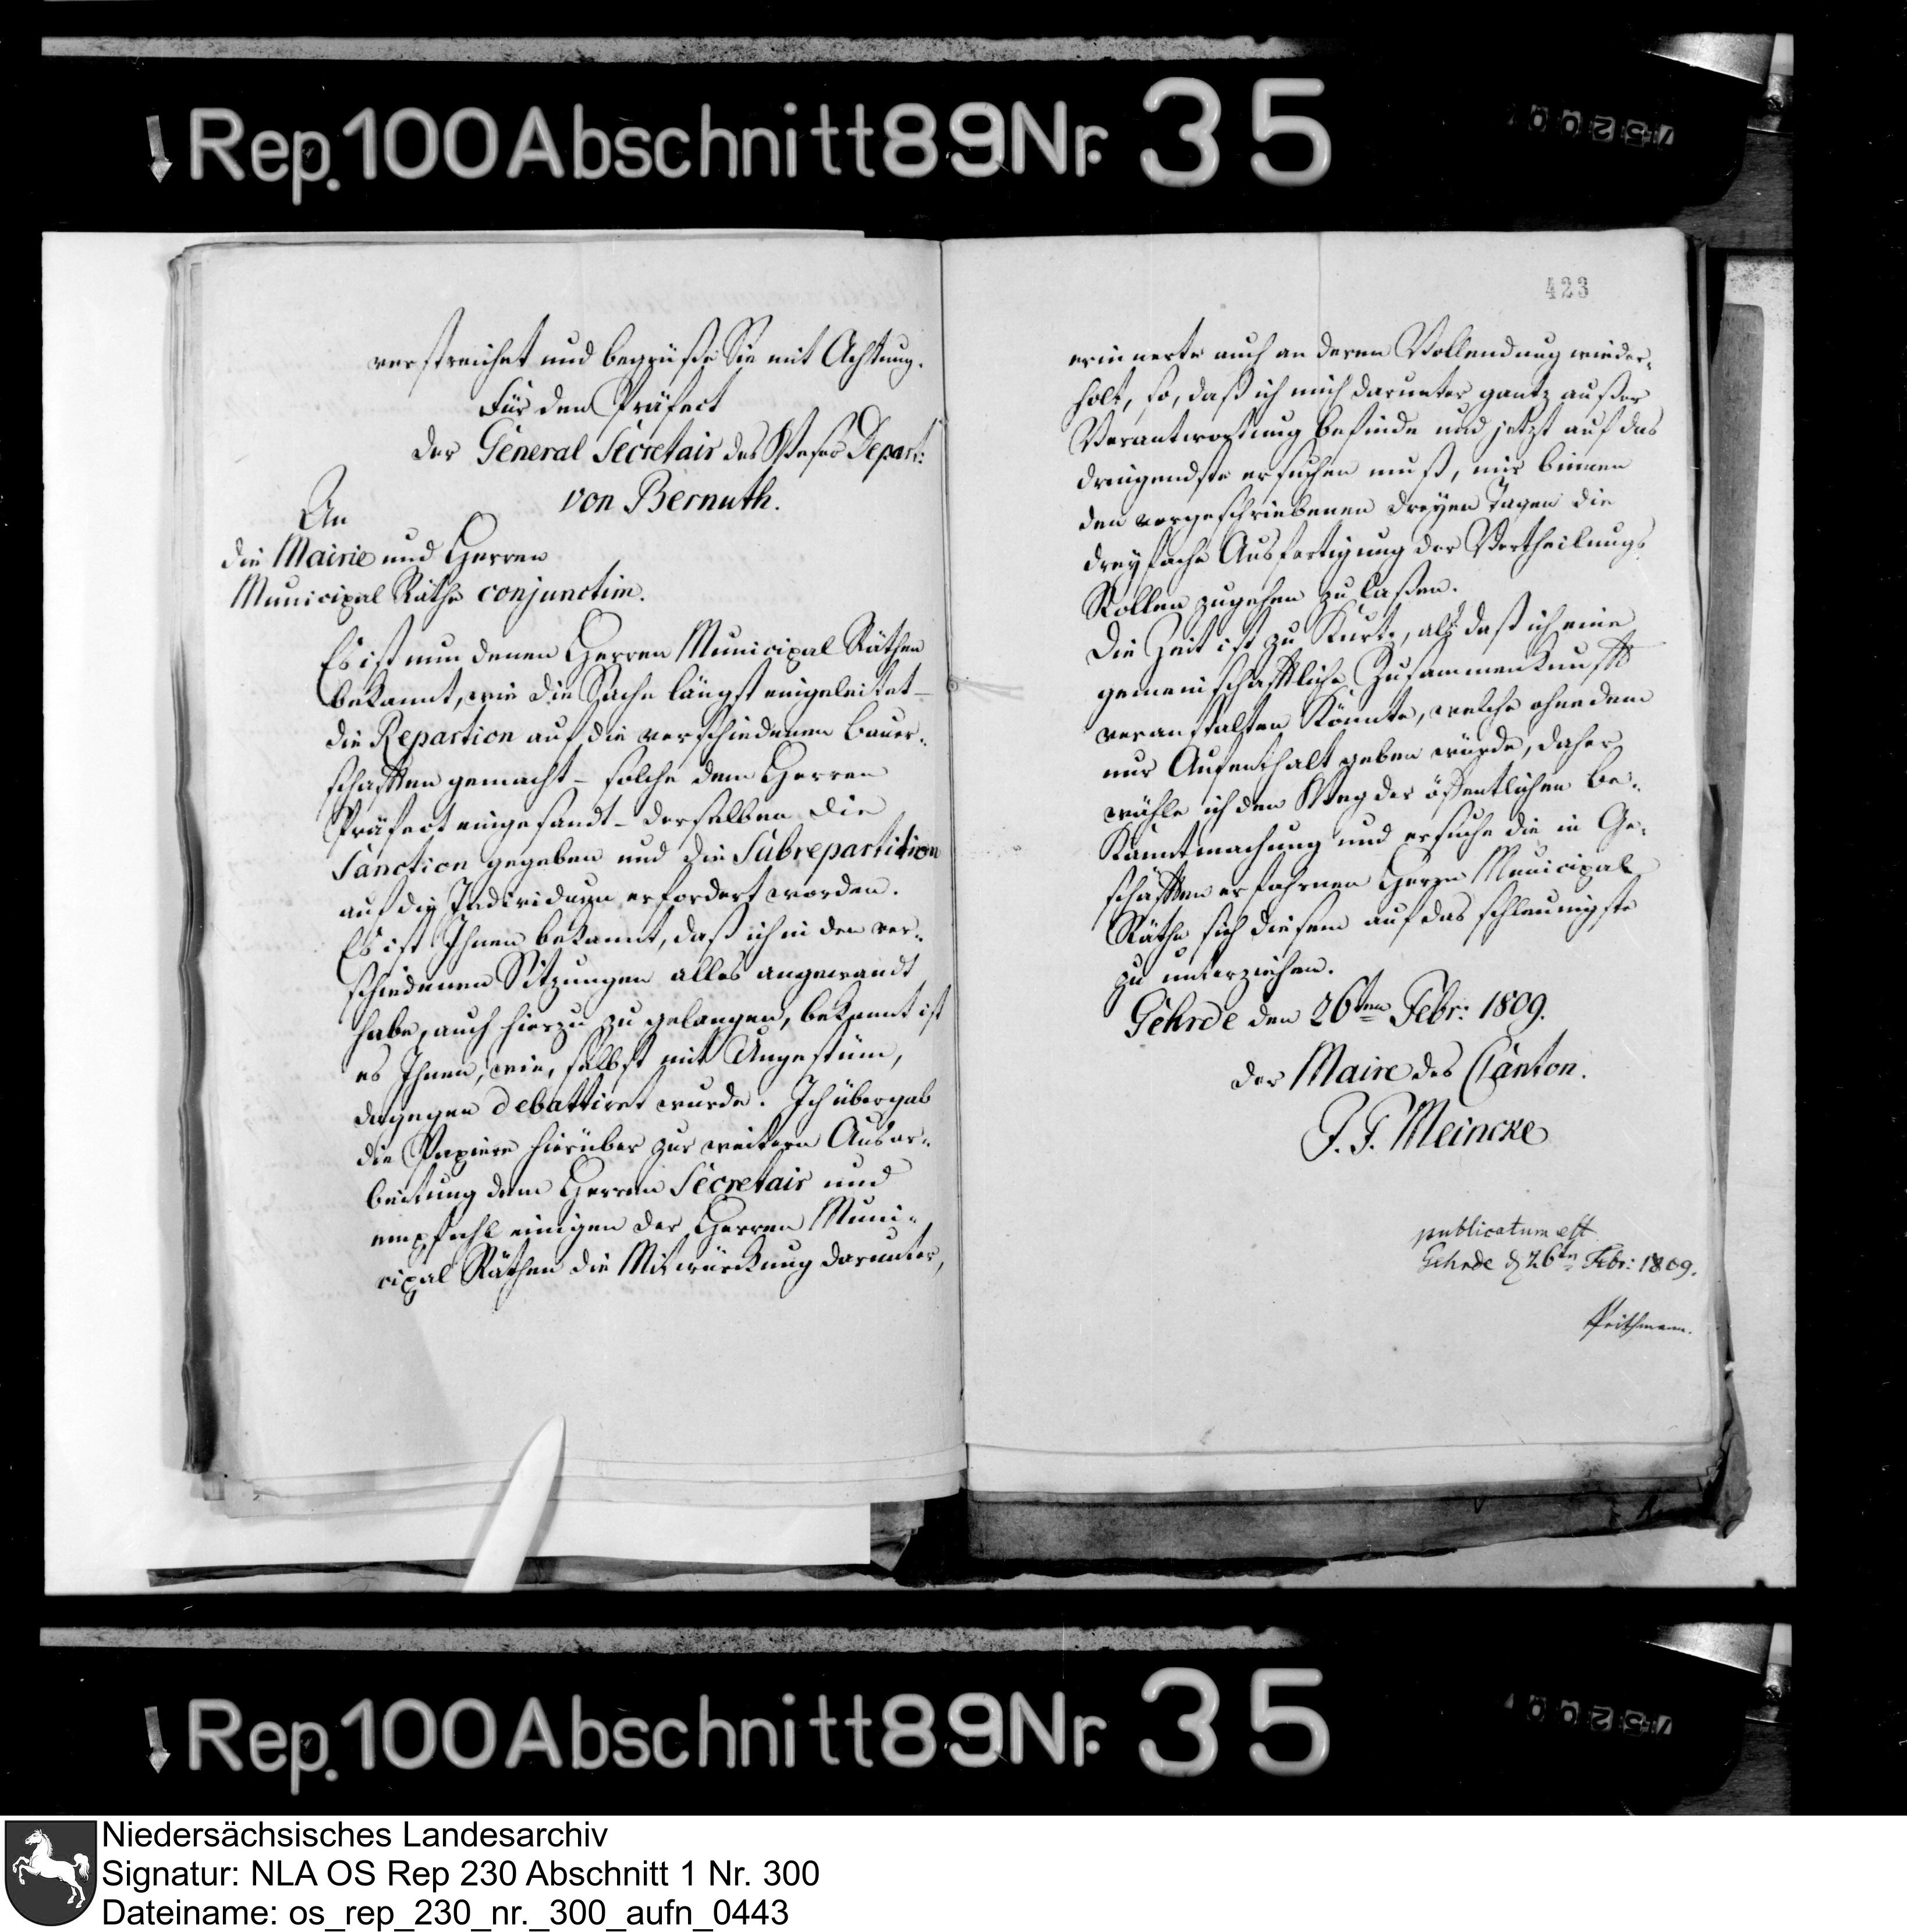 Rep. 100 Abschnitt 89 Nr. 35
verstreichet und begrüße Sie mit Achtung.
Für den Präfect
der General Secretair des Weser Depart:
von Bernuth.
An
die Mairie und Herren
Municipal Räthe conjunctim.
Es ist nun denen Herren Municipal Räthen
bekannt, wie die Sache längst eingeleitet –
die Repartion auf die verschiedenen Bauer-
schafften gemacht – solche dem Herren
Präfect eingesandt – derselben die
Sanction gegeben und die Subrepartition
auf die Individuen erfordert worden.
Es ist Ihnen bekannt, daß ich in den ver-
schiedenen Sitzungen alles angewandt
habe, auch hierzu zu gelangen, bekannt ist
es Ihnen, wie, selbst mit Ungestüm,
dagegen debattiret wurde. Ich übergab
die Papiere hierüber zur weitern Ausar-
beitung dem Herren Secretair und
empfahl einigen der Herren Muni-
cipal Räthen die Mitwürckung darunter,
423
erinnerte auch an deren Vollendung wieder-
holt, so, daß ich mich darunter gantz außer
Verantwortung befinde und jetzt auf das
dringendste ersuchen muß, mir binnen
den vorgeschriebenen dreyen Tagen die
dreyfache Ausfertigung der Vertheilungs
Rollen zugehen zu laßen.
Die Zeit ist zu kurtz, als daß ich eine
gemeinschafftliche Zusammenkunfft
veranstalten könnte, welche ohnedem
nur Aufenthalt geben würde, daher
wähle ich den Weg der öffentlichen Be-
kanntmachung und ersuche die in Ge-
schäfften erfahrnen Herrn Municipal
Räthe sich diesem auf das schleunigste
zu unterziehen.
Gehrde den 26ten Febr: 1809.
der Maire des Canton.
J. F. Meincke
publicatum est
Gehrde d 26tn Febr: 1809.
Rep. 100 Abschnitt 89 Nr. 35
Niedersächsisches Landesarchiv
Signatur: NLA OS Rep 230 Abschnitt 1 Nr. 300
Dateiname: os_rep_230_nr._300_aufn_0443